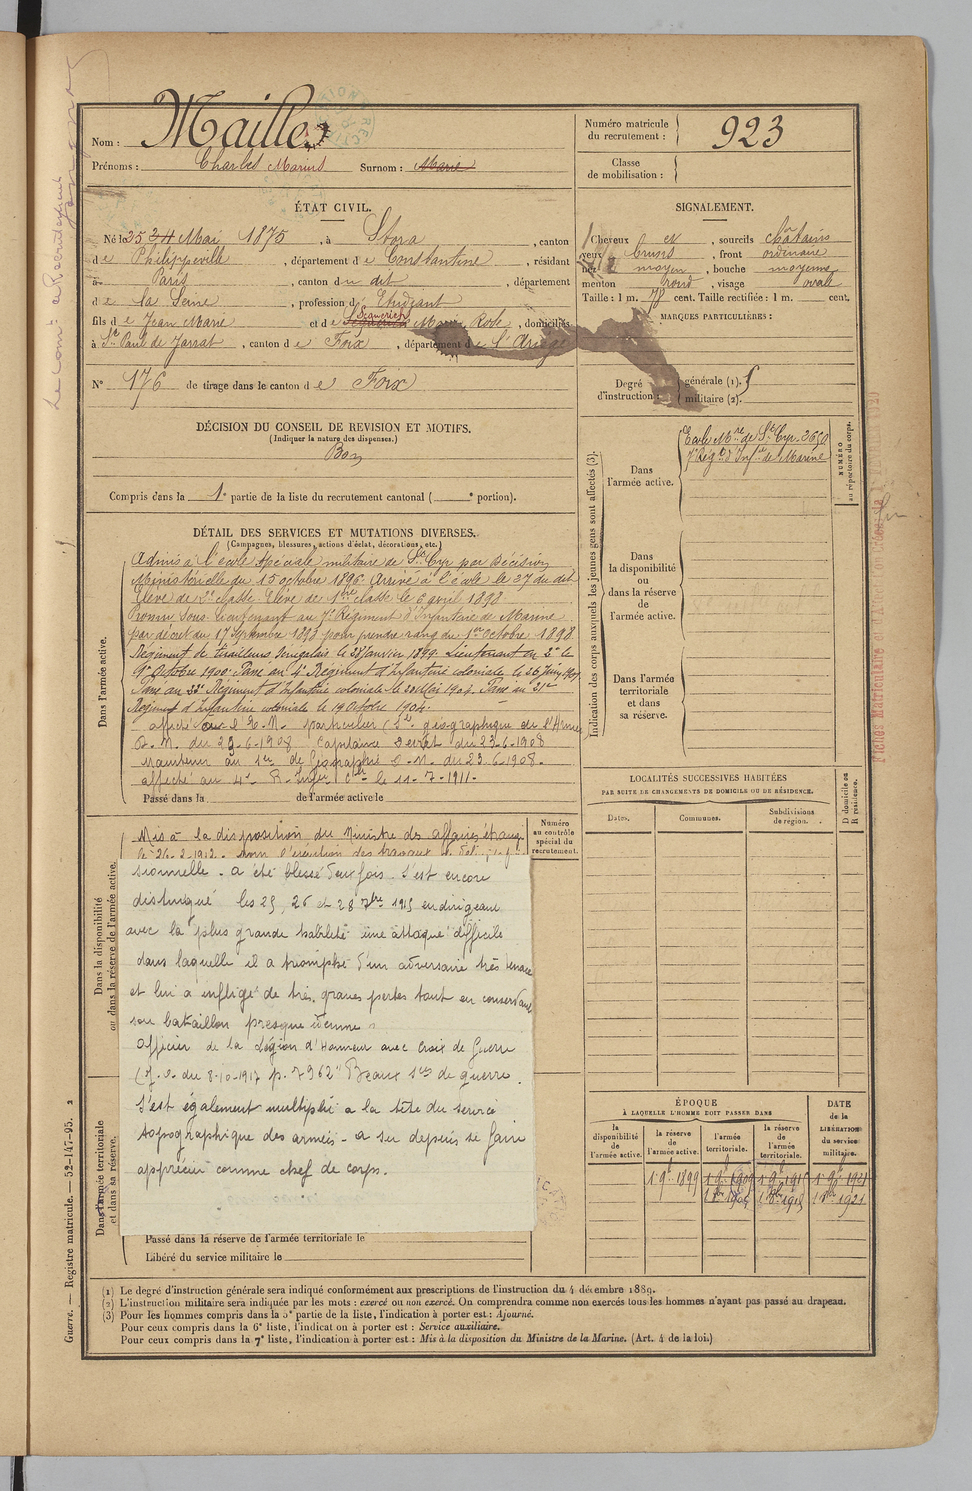 Nom : Mailles
Prénoms : Charles Marius Surnom : Marie
Numéro matricule du recrutement : 923
Classe de mobilisation :
ÉTAT CIVIL.
Né le 25 24 Mai 1875, à Stora, canton
de Philippeville, département de Constantine, résidant
à Paris, canton du dit, département
de la Seine, profession d'Etudiant
fils de Jean Marie et de Marie Rose, domiciliés
à St Paul de Jarrat, canton de Foix, département de l'Ariège
N° 176 de tirage dans le canton de Foix
SIGNALEMENT.
Cheveux et, sourcils châtains
yeux bruns, front ordinaire
nez moyen, bouche moyenne
menton rond, visage ovale
Taille : 1 m. 78 cent. Taille rectifiée : 1 m. cent.
MARQUES PARTICULIÈRES :
Degré d'instruction : générale (1). 5
militaire (2).
DÉCISION DU CONSEIL DE REVISION ET MOTIFS.
(Indiquer la nature des dispenses.)
Bon
Compris dans la 1e partie de la liste du recrutement cantonal ( e portion).
DÉTAIL DES SERVICES ET MUTATIONS DIVERSES.
(Campagnes, blessures, actions d'éclat, décorations, etc.)
Dans l'armée active.
Admis à l'école spéciale militaire de St Cyr par Décision
Ministérielle du 15 octobre 1896. Arrivé à l'école le 27 du dit
Elève de 2e classe. Elève de 1ère classe le 6 avril 1898
Promu Sous-lieutenant au 7e Régiment d'Infanterie de Marine
par décret du 17 Septembre 1898 pour prendre rang du 1er Octobre 1898.
Régiment de tirailleurs Sénégalais le 28 Janvier 1899. Lieutenant en 2e le
1er Octobre 1900. Passé au 4e Régiment d'Infanterie coloniale le 26 Juin
Passé au 22e Régiment d'Infanterie coloniale le 20 Mai 1904. Passé au 21e
Régiment d'Infanterie coloniale le 19 Octobre 1904.
affecté E. M. particulier (Sce géographique de l'Armée
D. M. du 29-6-1908 Capitaine Décret du 23-6-1908
maintenu au Sce de Géographie D. M. du 23-6-1908.
affecté au 4e R. Infie Cle le 11-7-1911.
Passé dans la de l'armée active le
Dans la disponibilité ou dans la réserve de l'armée active.
Mis à la disposition du Ministre des affaires étrang.
le 26-2-1912. pour l'exécution des travaux
sionnelle - a été blessé deux fois. S'est encore
distingué les 25, 26 et 28 7bre 1915 en dirigeant
avec la plus grande habileté une attaque difficile
dans laquelle il a triomphé d'un adversaire très tenace
et lui a infligé de très graves pertes tout en conservant
son bataillon presque idemne"
Officier de la Légion d'Honneur avec croix de Guerre
(J. O. du 8-10-1917 p. 7962 "Beaux Sces de guerre.
S'est également multiplié a la tête du service
topographique des armées - a su depuis se faire
apprécier comme chef de corps.
Dans l'armée territoriale et dans sa réserve.
Passé dans la réserve de l'armée territoriale le
Libéré du service militaire le
Numéro au contrôle spécial du recrutement.
Indication des corps auxquels les jeunes gens sont affectés (3).
Dans l'armée active.
Ecole Mre de St Cyr. 3650
7e Régt d'Infie de Marine
NUMÉRO au répertoire du corps.
Dans la disponibilité ou dans la réserve de l'armée active.
Dans l'armée territoriale et dans sa réserve.
LOCALITÉS SUCCESSIVES HABITÉES
PAR SUITE DE CHANGEMENTS DE DOMICILE OU DE RÉSIDENCE.
Dates. Communes. Subdivisions de région.
D domicile ou R résidence.
ÉPOQUE
À LAQUELLE L'HOMME DOIT PASSER DANS
la disponibilité de l'armée active.
la réserve de l'armée active.
l'armée territoriale.
la réserve de l'armée territoriale.
DATE de la LIBÉRATION du service militaire.
1 9bre 1899 1 9bre 1909 1 9bre 1915 1 9bre 1921
Guerre. — Registre matricule. — 52-147-95. 2
(1) Le degré d'instruction générale sera indiqué conformément aux prescriptions de l'instruction du 4 décembre 1889.
(2) L'instruction militaire sera indiquée par les mots : exercé ou non exercé. On comprendra comme non exercés tous les hommes n'ayant pas passé au drapeau.
(3) Pour les hommes compris dans la 5e partie de la liste, l'indication à porter est : Ajourné.
Pour ceux compris dans la 6e liste, l'indication à porter est : Service auxiliaire.
Pour ceux compris dans la 7e liste, l'indication à porter est : Mis à la disposition du Ministre de la Marine. (Art. 4 de la loi.)